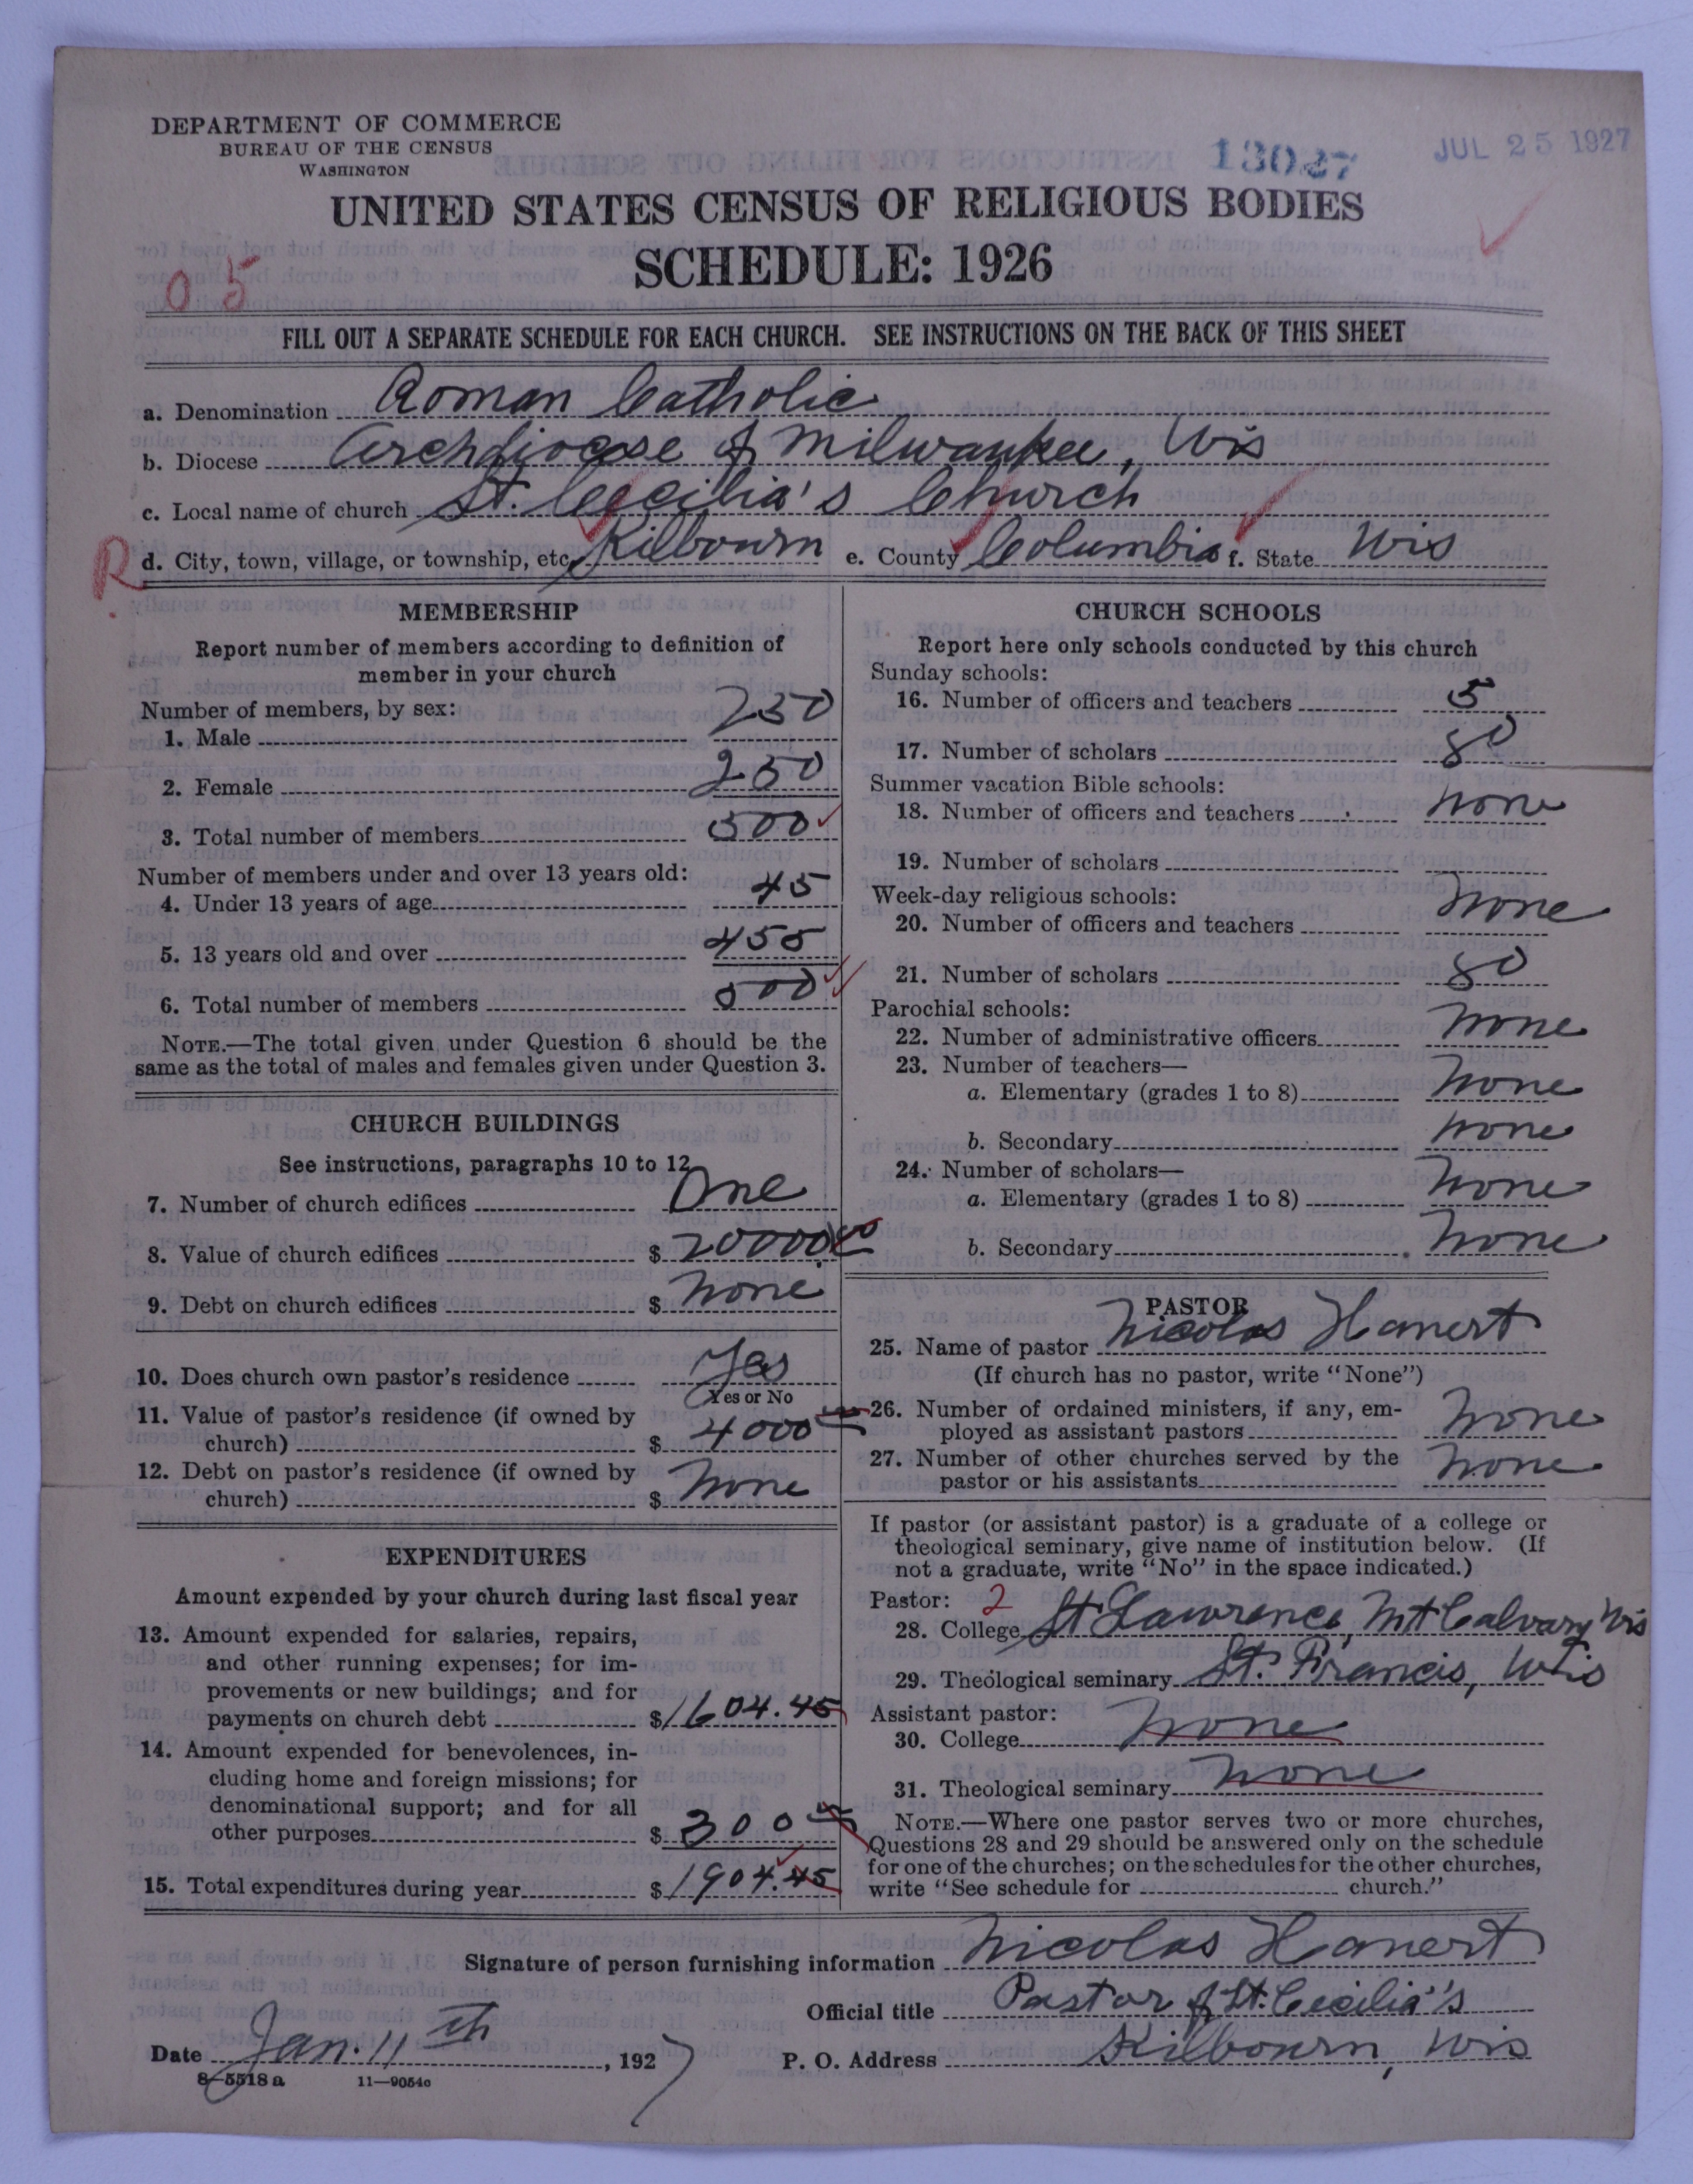 DEPARTMENT OF COMMERCE
BUREAU OF THE CENSUS
WASHINGTON
13027
JUL 25 1927
UNITED STATES CENSUS OF RELIGIOUS BODIES
SCHEDULE: 1926
0 5
FILL OUT A SEPARATE SCHEDULE FOR EACH CHURCH. SEE INSTRUCTIONS ON THE BACK OF THIS SHEET
a. Denomination Roman Catholic
b. Diocese Archdiocese of Milwaukee, Wis
c. Local name of church St. Cecilia's Church
R d. City, town, village, or township, etc. Kilbourn e. County Columbia f. State Wis
MEMBERSHIP
Report number of members according to definition of
member in your church
Number of members, by sex:
1. Male 250
2. Female 250
3. Total number of members 500
Number of members under and over 13 years old:
4. Under 13 years of age 45
5. 13 years old and over 455
6. Total number of members 500
NOTE.—The total given under Question 6 should be the
same as the total of males and females given under Question 3.
CHURCH BUILDINGS
See instructions, paragraphs 10 to 12
7. Number of church edifices One
8. Value of church edifices $ 20000 00
9. Debt on church edifices $ None
10. Does church own pastor's residence Yes
Yes or No
11. Value of pastor's residence (if owned by
church) $ 4000 00
12. Debt on pastor's residence (if owned by
church) $ None
EXPENDITURES
Amount expended by your church during last fiscal year
13. Amount expended for salaries, repairs,
and other running expenses; for im-
provements or new buildings; and for
payments on church debt $ 1604.45
14. Amount expended for benevolences, in-
cluding home and foreign missions; for
denominational support; and for all
other purposes $ 300 00
15. Total expenditures during year $ 1904.45
CHURCH SCHOOLS
Report here only schools conducted by this church
Sunday schools:
16. Number of officers and teachers 5
17. Number of scholars 80
Summer vacation Bible schools:
18. Number of officers and teachers None
19. Number of scholars
Week-day religious schools:
20. Number of officers and teachers None
21. Number of scholars 80
Parochial schools:
22. Number of administrative officers None
23. Number of teachers—
a. Elementary (grades 1 to 8) None
b. Secondary None
24. Number of scholars—
a. Elementary (grades 1 to 8) None
b. Secondary None
PASTOR
25. Name of pastor Nicolas Hanert
(If church has no pastor, write "None")
26. Number of ordained ministers, if any, em-
ployed as assistant pastors None
27. Number of other churches served by the
pastor or his assistants None
If pastor (or assistant pastor) is a graduate of a college or
theological seminary, give name of institution below. (If
not a graduate, write "No" in the space indicated.)
Pastor: 2
28. College St Lawrence, Mt Calvary Wis
29. Theological seminary St. Francis, Wis
Assistant pastor:
30. College None
31. Theological seminary None
NOTE.—Where one pastor serves two or more churches,
Questions 28 and 29 should be answered only on the schedule
for one of the churches; on the schedules for the other churches,
write "See schedule for church."
Signature of person furnishing information Nicolas Hanert
Official title Pastor of St. Cecilia's
Date Jan. 11th, 1927 P. O. Address Kilbourn, Wis
8—5518a 11—9054o